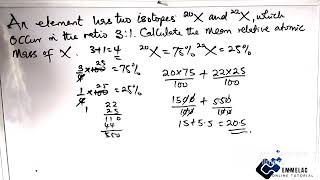 An element has two isotopes ²⁰X and ²²X, which
occur in the ratio 3:1. Calculate the mean relative atomic
mass of X. 3+1=4 ²⁰X = 75% ²²X = 25%
3/4 × 100 25 = 75%
1/4 × 100 25 = 25%
1
22
25
110
44
550
20×75/100 + 22×25/100
1500/100 + 550/100
15 + 5.5 = 20.5
EMMELAC
ONLINE TUTORIAL